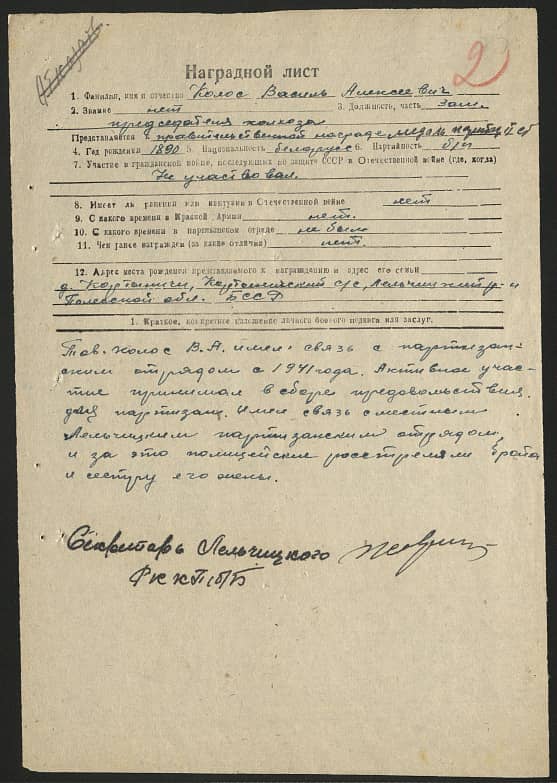 2
Наградной лист
1. Фамилия, имя и отчество Колос Василь Алексеевич
2. Звание нет 3. Должность, часть Зам.
председателя колхоза
Представляется к правительственной награде медаль партиз II ст
4. Год рождения 1890 5. Национальность белорусс 6. Партийность б/п
7. Участие в гражданской войне, последующих по защите СССР в Отечественной войне (где, когда)
Не участвовал.
8. Имеет ли ранения или контузии в Отечественной войне нет
9. С какого времени в Красной Армии нет.
10. С какого времени в партизанском отряде не был
11. Чем ранее награжден (за какие отличия) нет.
12. Адрес места рождения представляемого к награждению и адрес его семьи
д. с/с, Лельчицкий р-н
Полесской обл. БССР
1. Краткое, конкретное изложение личного боевого подвига или заслуг.
Тов. Колос В.А. имел связь с партизан-
ским отрядом с 1941 года. Активное учас-
тие принимал в сборе продовольствия
для партизан. Имел связь с местным
Лельчицким партизанским отрядом,
и за это полицейские расстреляли брата
и сестру его жены.
Секретарь Лельчицкого
РК КП(б)Б